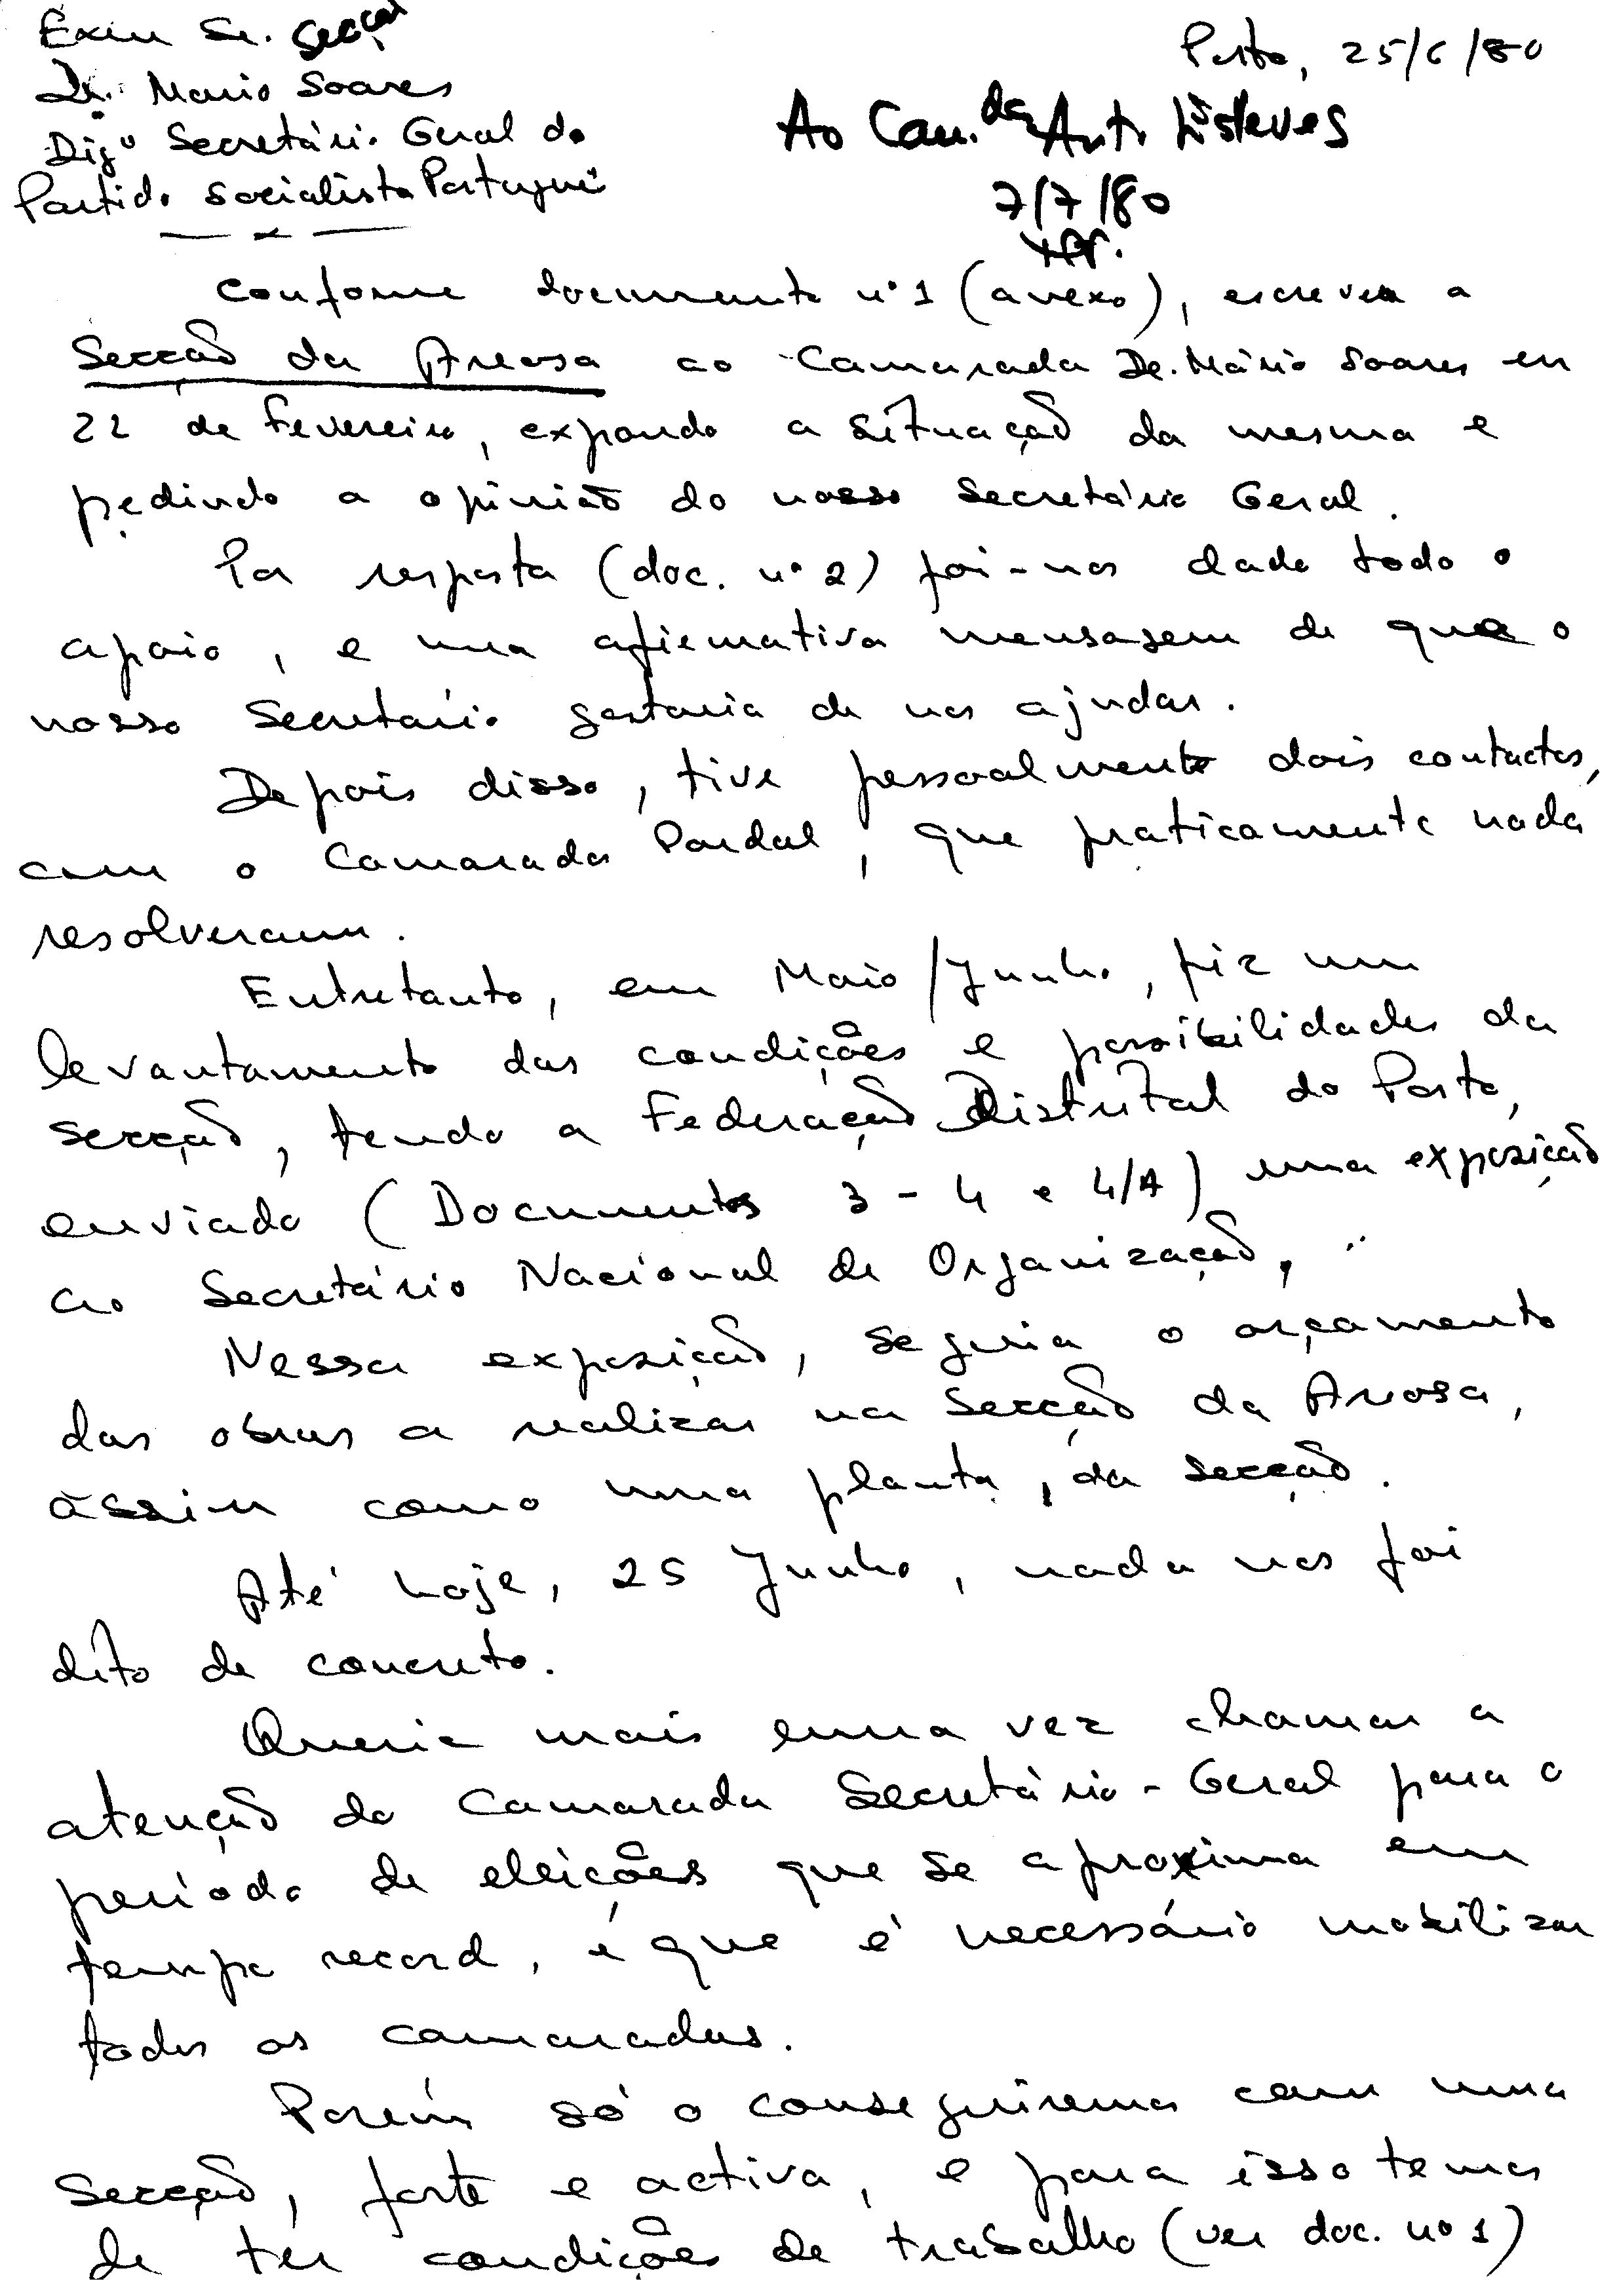 Exmo Sr. Secção
Dr. Mario Soares
Digº Secretário Geral do
Partido Socialista Português
Porto, 25/6/80
Ao Cam.da Antº Esteves
7/7/80
Conforme documento nº 1 (anexo), escreveu a
Secção da Areosa ao Camarada Dr. Mário Soares em
22 de Fevereiro, expondo a situação da mesma e
pedindo a opinião do nosso Secretário Geral.
Por resposta (doc. nº 2) foi-nos dado todo o
apoio, e uma afirmativa mensagem de que o
nosso Secretário gostaria de nos ajudar.
Depois disso, tive pessoalmente dois contactos,
com o Camarada Pardal, que praticamente nada
resolveram.
Entretanto, em Maio/Junho, fiz um
levantamento das condições e possibilidades da
secção, tendo a Federação Distrital do Porto,
enviado (Documentos 3 - 4 e 4/A) uma exposição
ao Secretário Nacional de Organização,
Nessa exposição, seguia o orçamento
das obras a realizar na Secção da Areosa,
assim como uma planta, da secção.
Até hoje, 25 Junho, nada nos foi
dito de concreto.
Queria mais uma vez chamar a
atenção do Camarada Secretário-Geral para o
período de eleições que se aproxima em
tempo record, é que é necessário mobilizar
todos os camaradas.
Porém só o conseguiremos com uma
Secção, forte e activa, e para isso temos
de ter condições de trabalho (ver doc. nº 1)